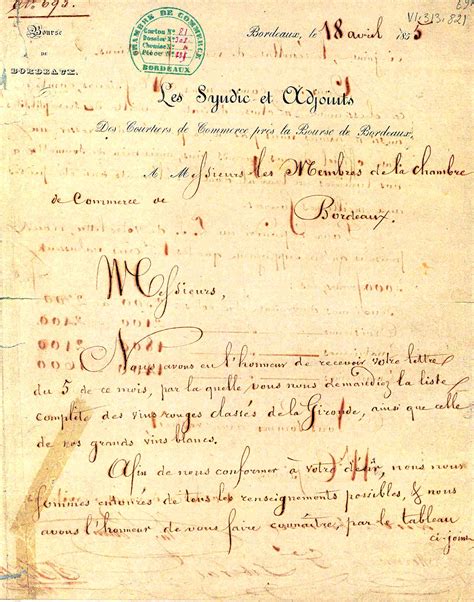 N° 693.
VI(313.821)
Bourse
DE
BORDEAUX.
CHAMBRE DE COMMERCE
Carton N° 21
Dossier N°
Chemise N°
Pièce N°
BORDEAUX
Bordeaux, le 18 avril 1855
Les Syndic et Adjoints
Des Courtiers de Commerce près la Bourse de Bordeaux,
A Messieurs les Membres de la chambre
de Commerce de
Bordeaux.
Messieurs,
Nous avons eu l'honneur de recevoir votre lettre
du 5 de ce mois, par la quelle vous nous demandiez la liste
complète des vins rouges classés de la Gironde, ainsi que celle
de nos grands vins blancs.
Afin de nous conformer à votre désir, nous nous
sommes entourés de tous les renseignements possibles, & nous
avons l'honneur de vous faire connaître, par le tableau
ci-joint